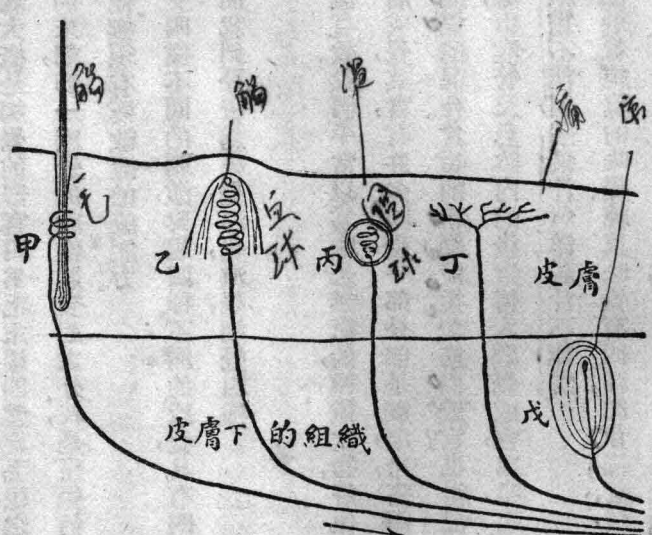 觸
觸
温
痛
毛
甲
乙
球
丙
球
丁
皮膚
戊
皮膚下的組織